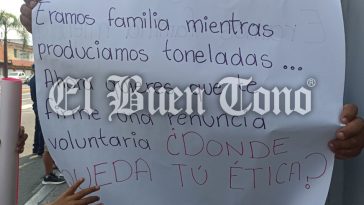 Éramos familia mientras
produciamos toneladas ...
Ahora quieres que te
firme una renuncia
voluntaria ¿DONDE
QUEDA TÚ ÉTICA?
El Buen Tono®